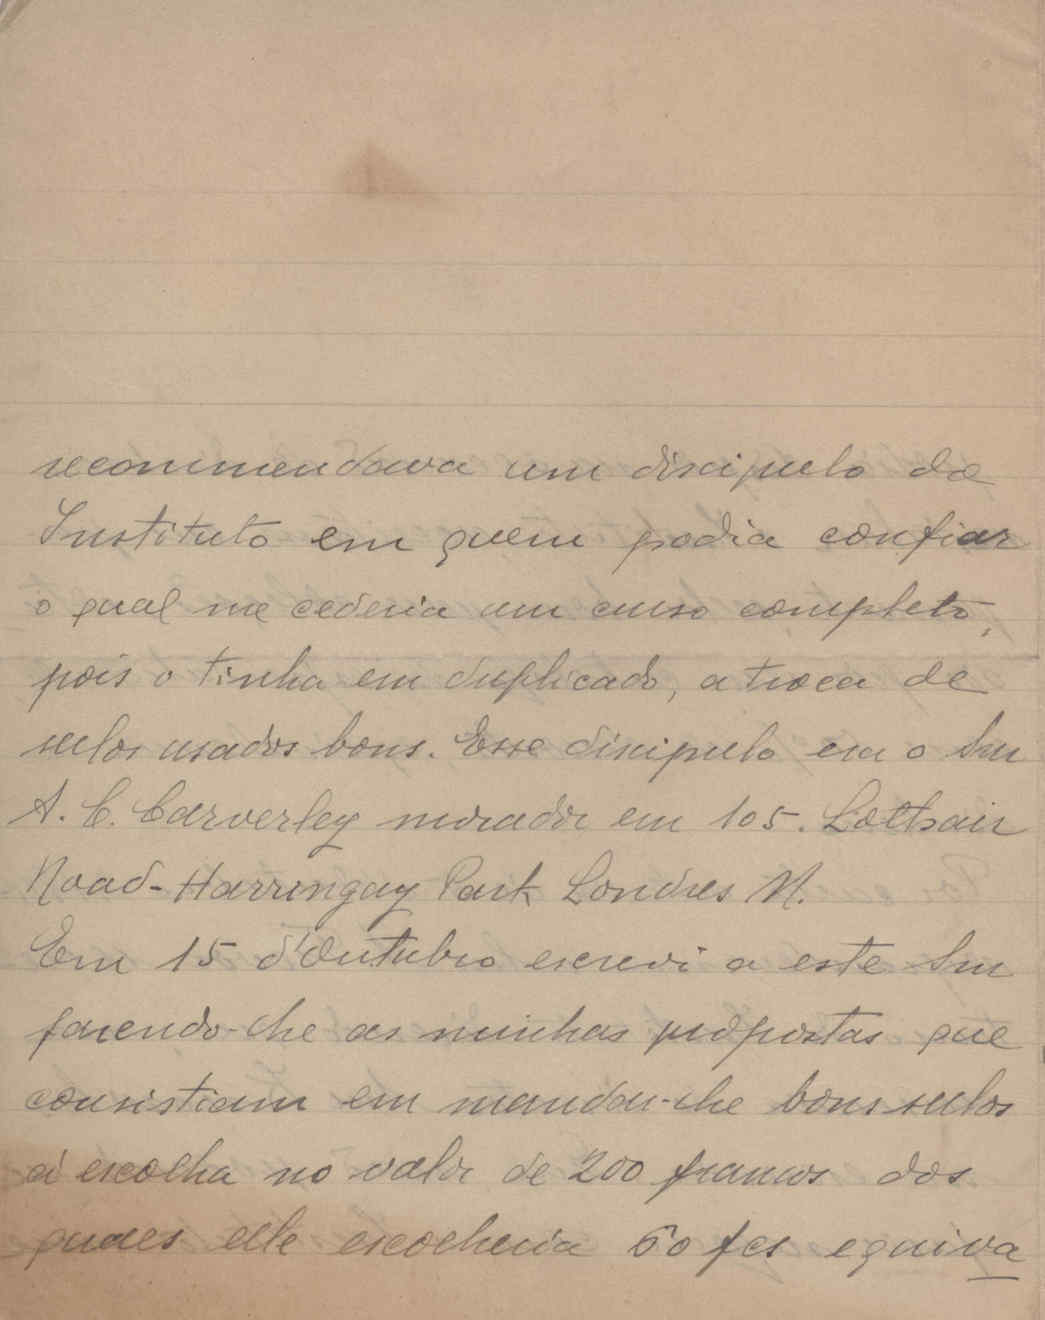 recommendava um discipulo do
Instituto em quem podia confiar
o qual me cederia um curso completo,
pois o tinha em duplicado, a troca de
sellos usados bons. Esse discipulo era o Snr
A. C. Carverley morador em 105. Lothair
Road-Harringay Park Londres N.
Em 15 d'Outubro escrevi a este Snr
fazendo-lhe as minhas propostas que
consistiam em mandar-lhe bons sellos
á escolha no valor de 200 francos dos
quaes elle escolheria 60 fcs equiva